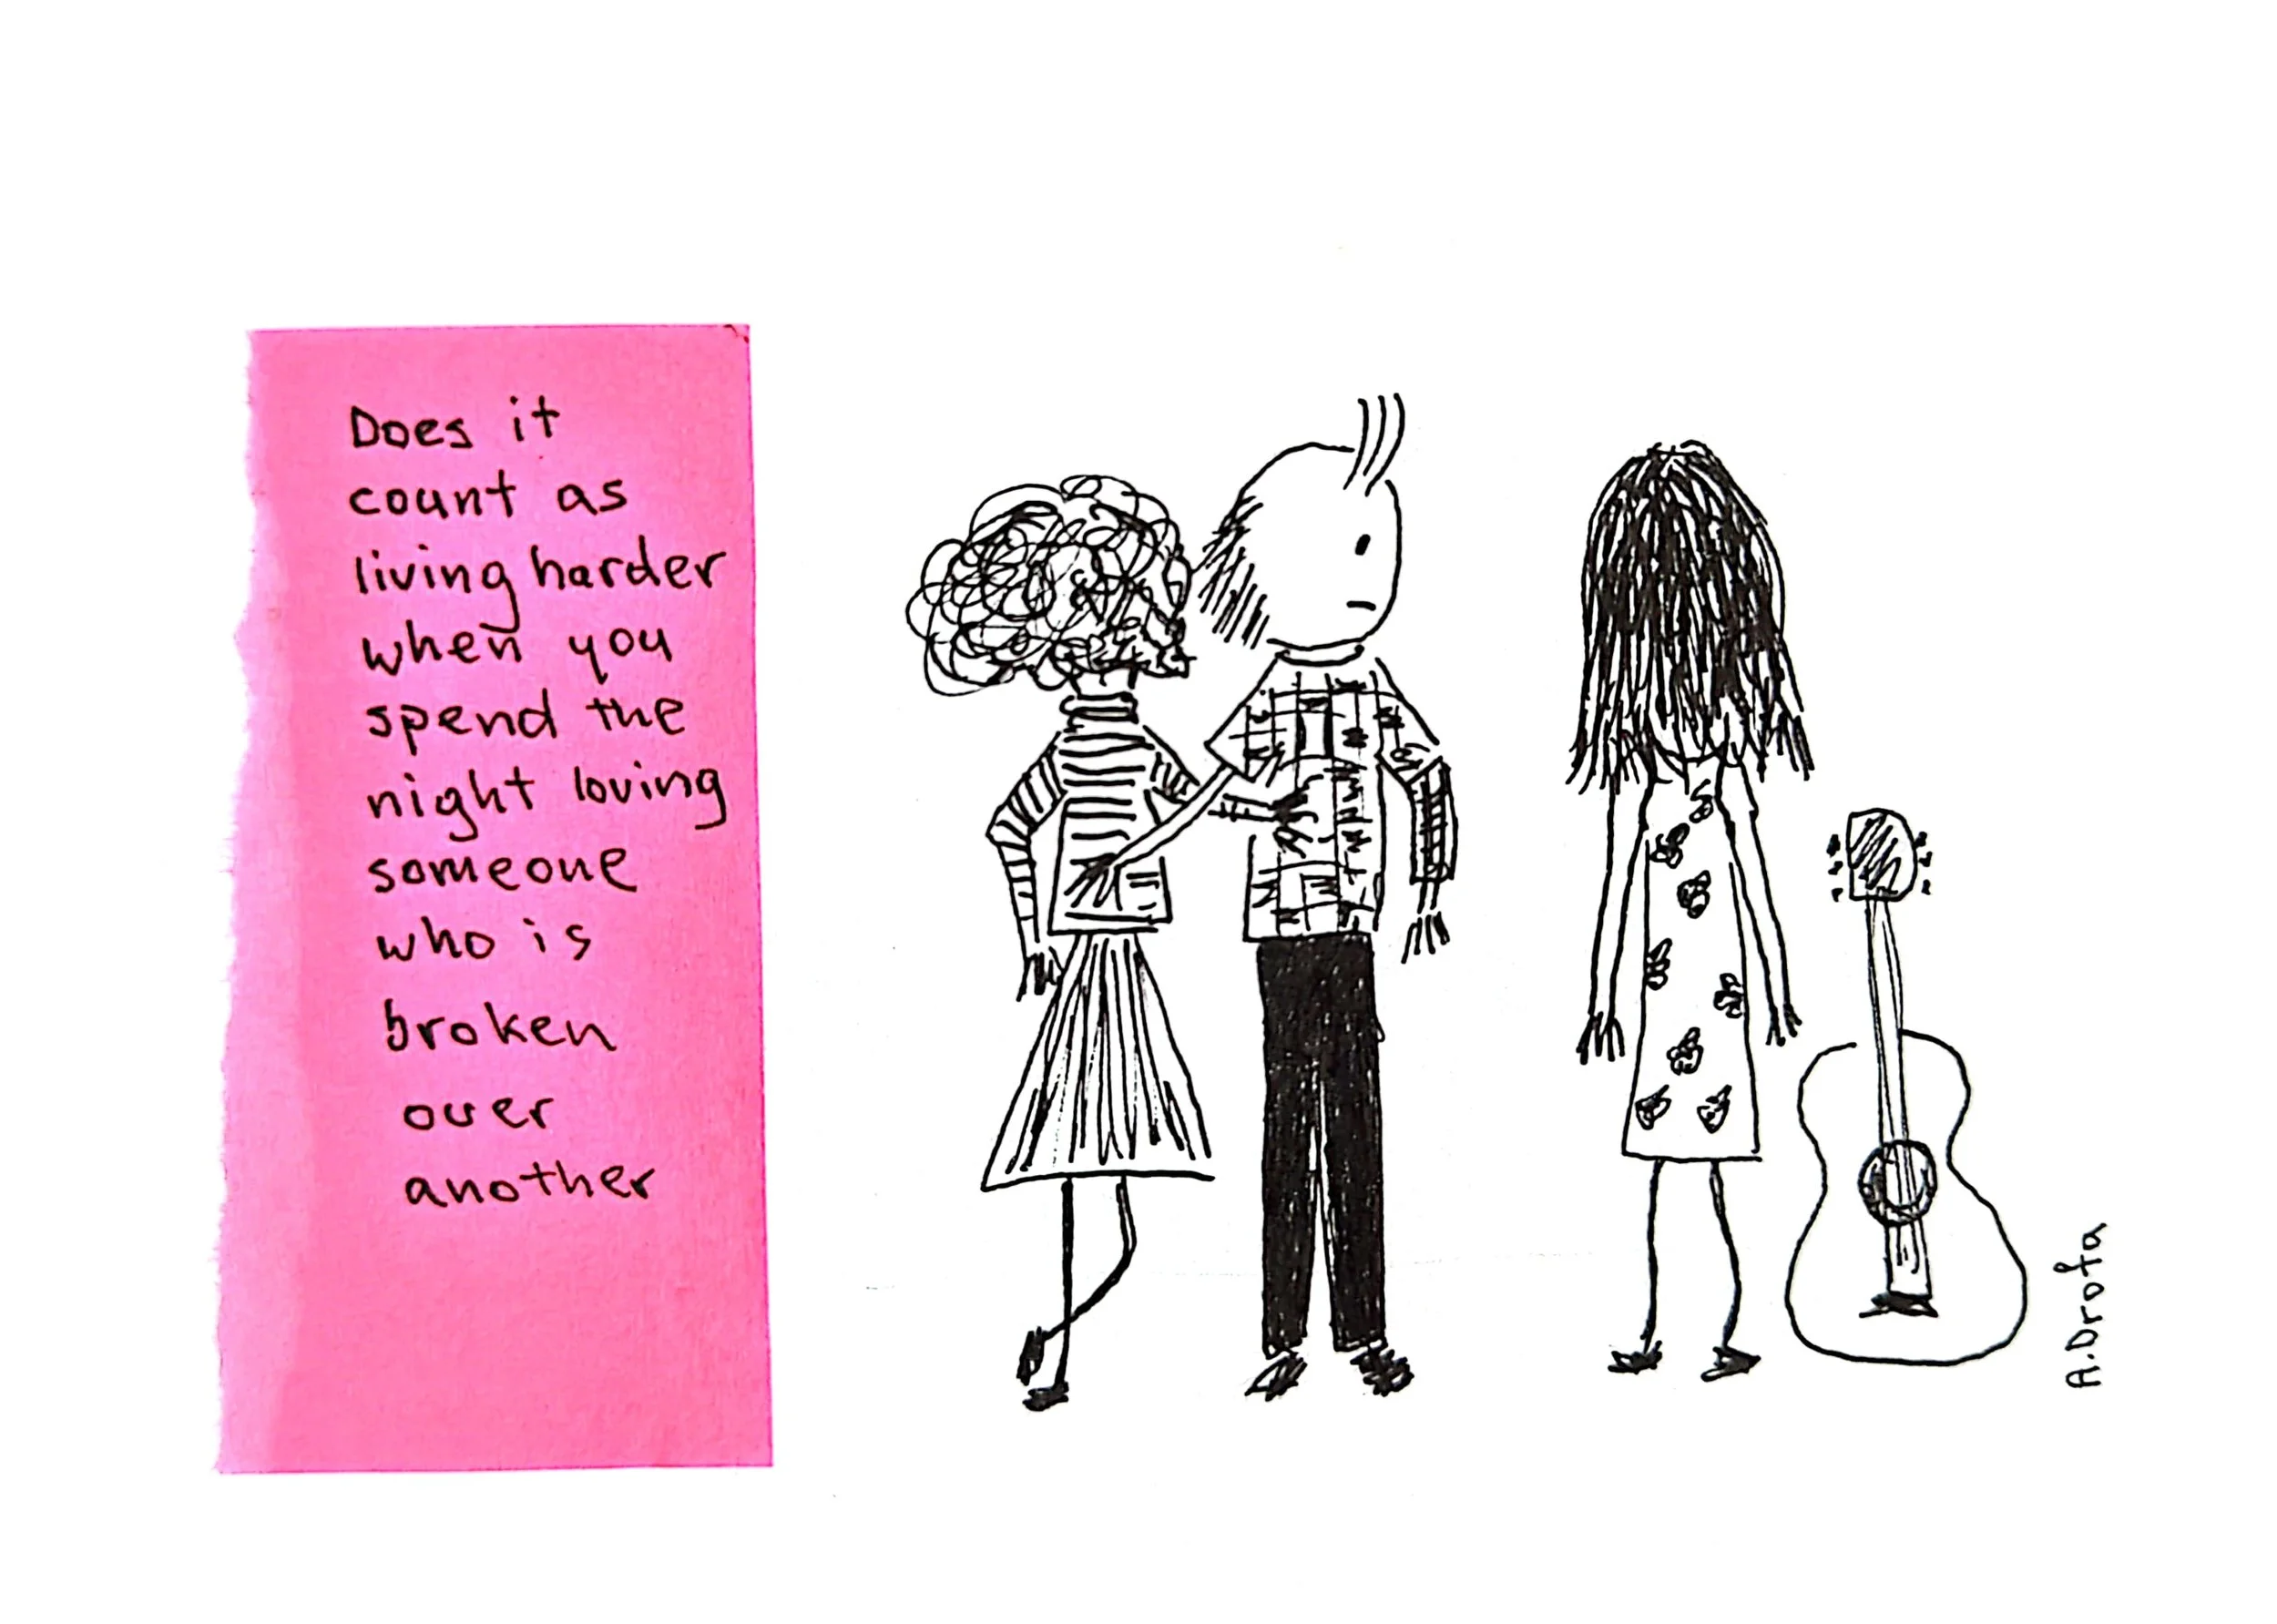 Does it
count as
living harder
when you
spend the
night loving
someone
who is
broken
over
another
A.Drofa